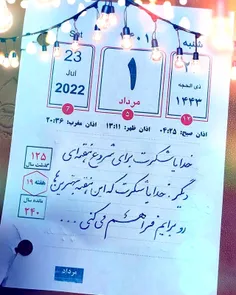 شنبه
Sat
23
Jul
2022
۱
مرداد
ذی الحجه
۱۴۴۳
اذان صبح: ۰۴:۲۵ اذان ظهر: ۱۳:۱۱ اذان مغرب: ۲۰:۳۶
خدایا شکرت برای شروع هفته‌ای
دیگر. خدایا شکرت که این هفته بهترین‌ها
رو برایم فراهم می‌کنی ....
۱۲۵
گذشت سال
هفته ۱۹
مانده سال
۲۴۰
مرداد